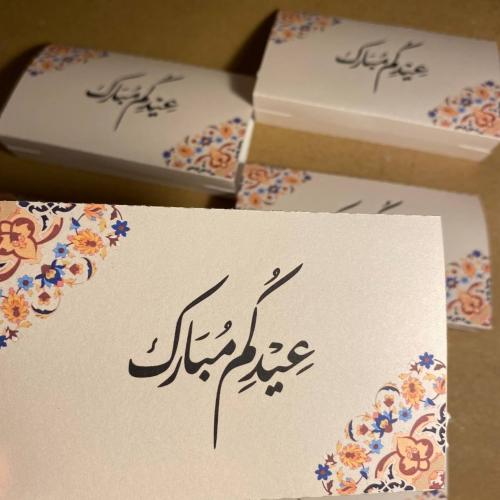 عِيْدُكُم مُبَارَك
عِيْدُكُم مُبَارَك
عِيْدُكُم مُبَارَك